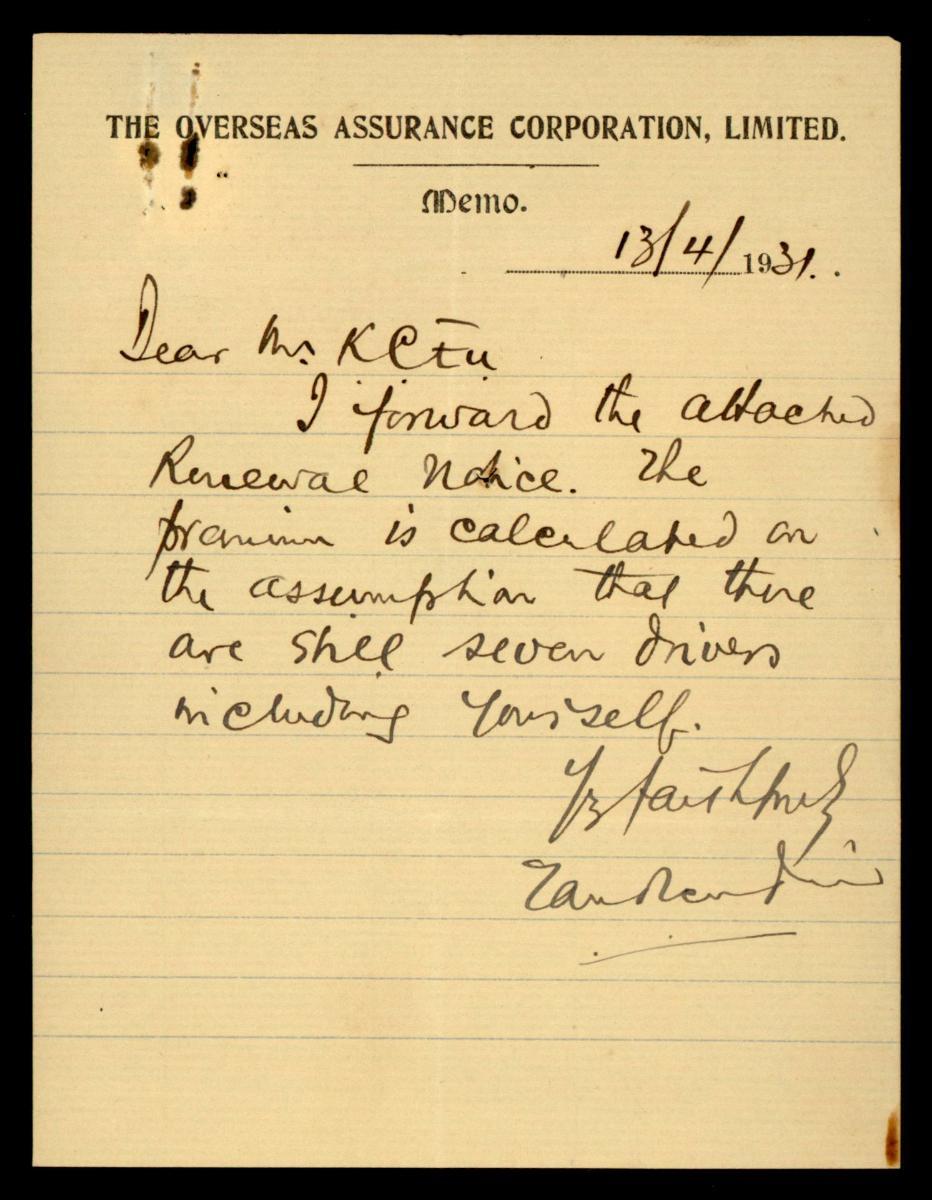 THE OVERSEAS ASSURANCE CORPORATION, LIMITED.
Memo.
13/4/1931.
Dear Mr. K C Fu
I forward the attached
Renewal Notice. The
premium is calculated on
the assumption that there
are still seven drivers
including Yourself.
Yrs faithfully